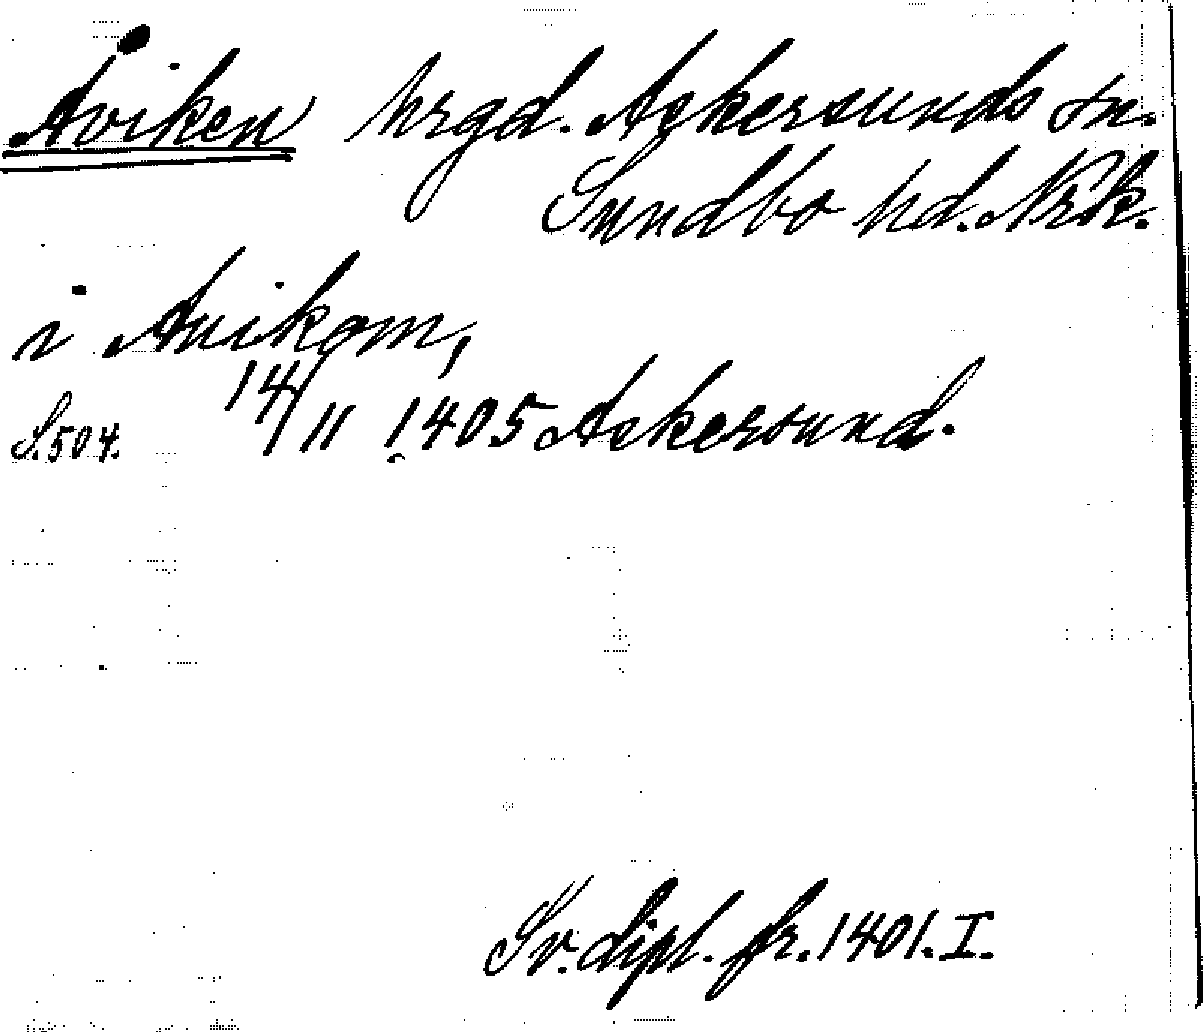 Åviken hrgd. Askersunds sn.
Sundbo hd. Nrk.
i Auikom,
S. 504. 14/11 1405 Askersund.
Sv. dipl. fr. 1401. I.